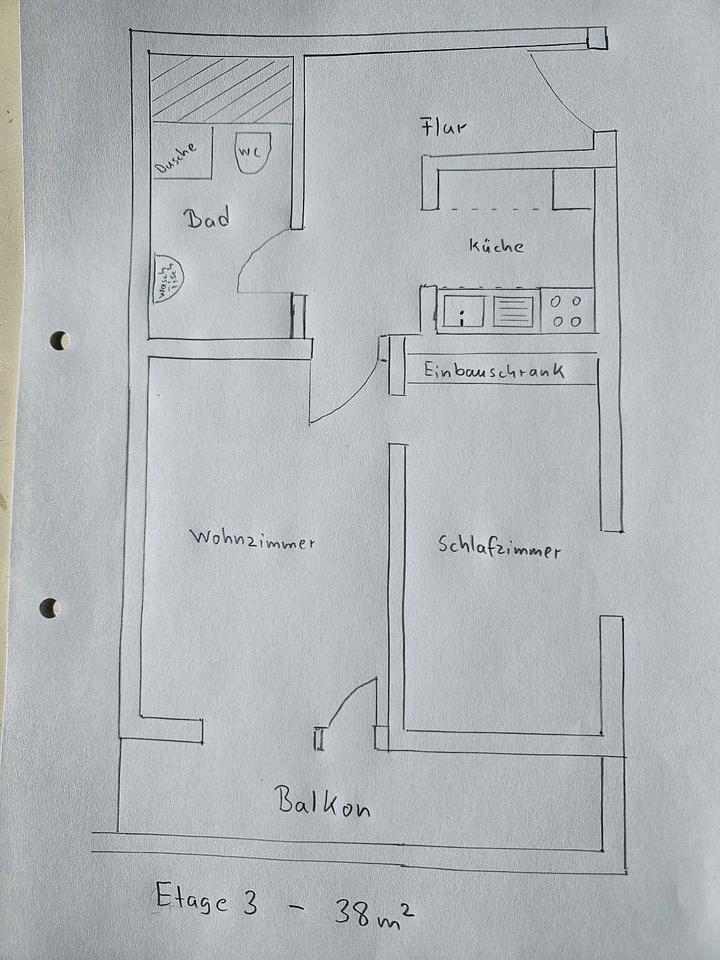 Flur
Dusche
WC
Bad
Küche
Wasch
tisch
Einbauschrank
Wohnzimmer
Schlafzimmer
Balkon
Etage 3 - 38m²